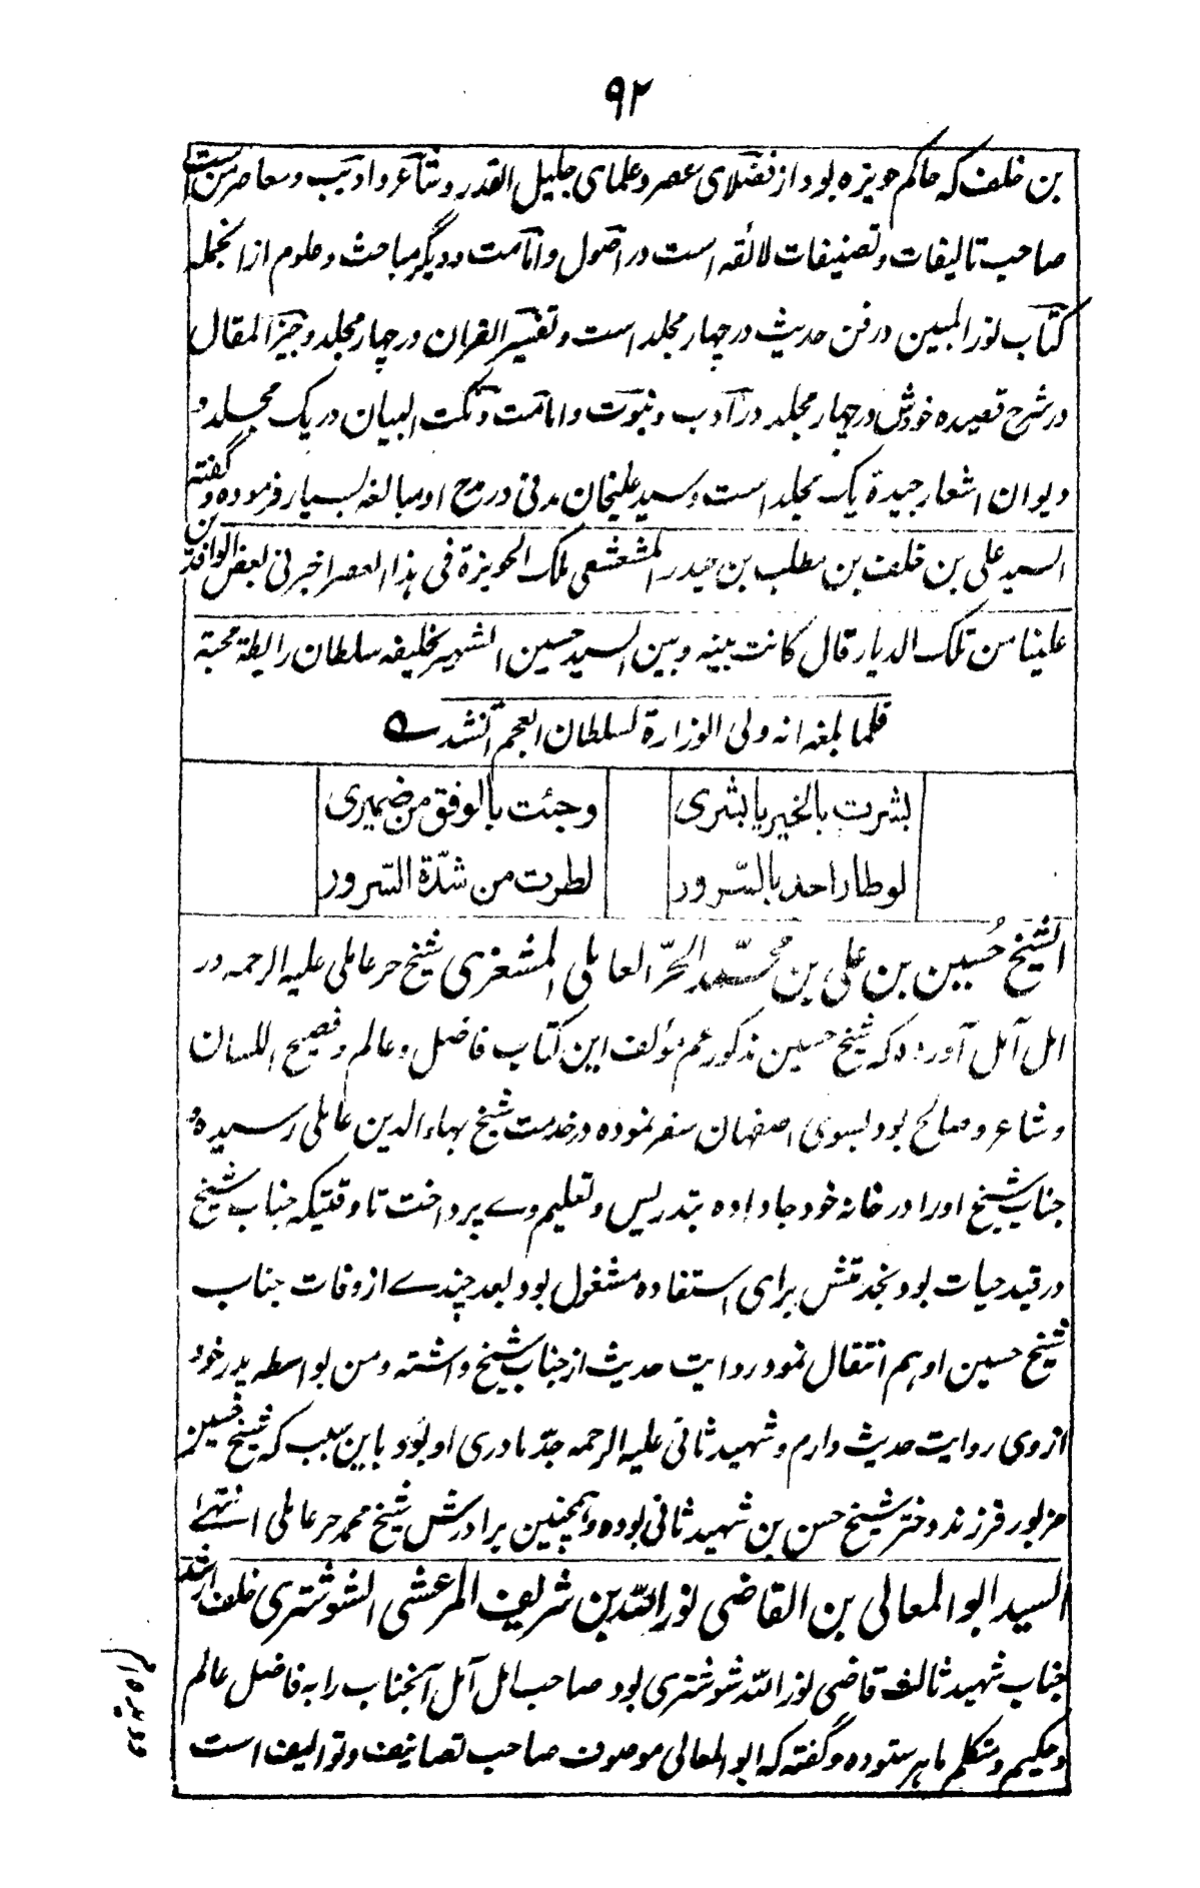 ۹۲
بن خلف که حاکم حویزه بود از فضلای عصر و علمای جلیل القدر و شاعر و ادیب و معاصر من است
صاحب تالیفات و تصنیفات لائقه است در اصول و امامت و دیگر مباحث و علوم از انجمله
کتاب نور المبین در فن حدیث در چهار مجلد است و تفسیر القران در چهار مجلد و خیر المقال
در شرح قصیده خودش در چهار مجلد در آدب و نبوت و امامت و نکت البیان در یک مجلد و
دیوان اشعار جیدة یک مجلد است و سید علیخان مدنی در مدح او مبالغه بسیار فرموده و گفته
السید علی بن خلف بن مطلب بن حیدر المشعشعی ملک الحویزة فی هذا العصر اخبرنی بعض الوافدین
علینا من تلک الدیار قال کانت بینه و بین السید حسین الشهیر بخلیفه سلطان رابطة محبة
فلما بلغه انه ولی الوزارة لسلطان العجم انشد ۵
بشرت بالخیر یا بشری وجئت بالوفق من ضمیری
لو طار احد بالسّرور لطرت من شدّة السّرور
الشیخ حُسین بن علی بن محمّد الحرّ العاملی المشغری شیخ حر عاملی علیه الرحمه در
امل آمل آورده که شیخ حسین مذکور عم مؤلف این کتاب فاضل و عالم و فصیح اللسان
و شاعر و صالح بود بسوی اصفهان سفر نموده در خدمت شیخ بهاء الدین عاملی رسیده و
جناب شیخ اورا در خانه خود جا داده بتدریس و تعلیم وے پرداخت تا وقتیکه جناب شیخ
در قید حیات بود بخدمتش برای استفاده مشغول بود بعد چندے از وفات جناب
شیخ حسین او هم انتقال نمود روایت حدیث از جناب شیخ داشته و من بواسطه پدر خود
از وی روایت حدیث دارم و شهید ثانی علیه الرحمه جدّ مادری او بود باین سبب که شیخ حسین
مزبور فرزند دختر شیخ حسن بن شهید ثانی بوده و همچنین برادرش شیخ محمد حر عاملی انتهے
السید ابو المعالی بن القاضی نور اللّه بن شریف المرعشی الشوشتری خلف ارشد
جناب شهید ثالث قاضی نور اللّه شوشتری بود صاحب امل آمل آنجناب را به فاضل عالم
و حکیم و متکلم ماهر ستوده و گفته که ابو المعالی موصوف صاحب تصانیف و توالیف است